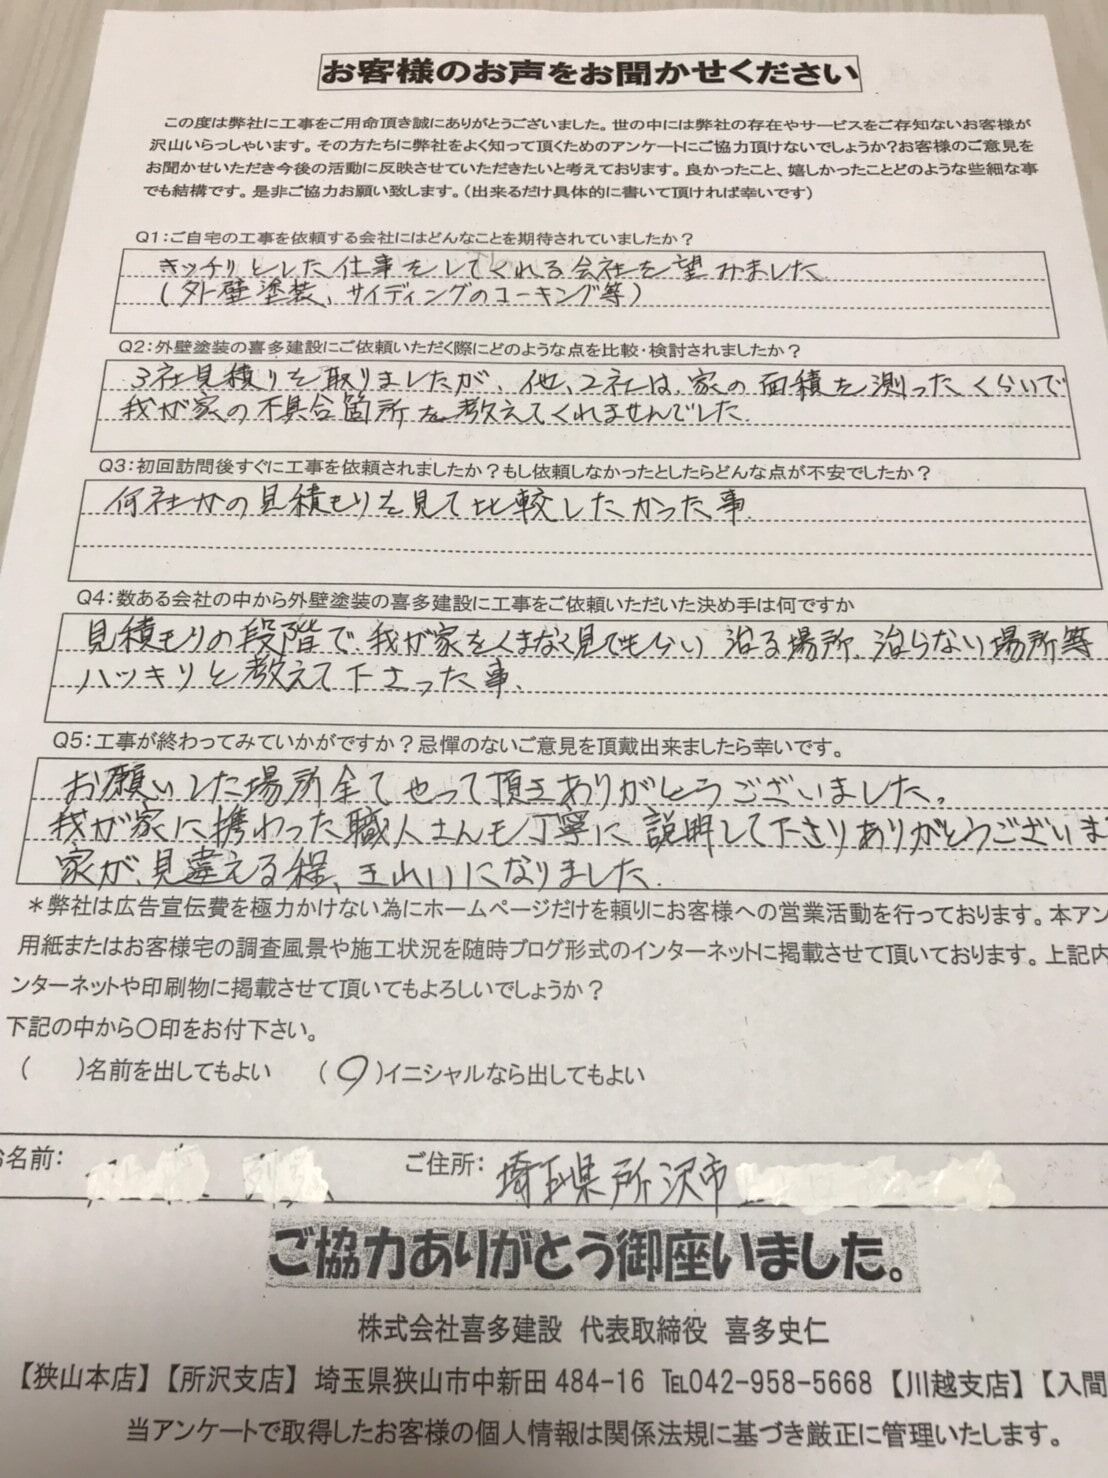 お客様のお声をお聞かせください
この度は弊社に工事をご用命頂き誠にありがとうございました。世の中には弊社の存在やサービスをご存知ないお客様が
沢山いらっしゃいます。その方たちに弊社をよく知って頂くためのアンケートにご協力頂けないでしょうか?お客様のご意見を
お聞かせいただき今後の活動に反映させていただきたいと考えております。良かったこと、嬉しかったことどのような些細な事
でも結構です。是非ご協力お願い致します。(出来るだけ具体的に書いて頂ければ幸いです)
Q1:ご自宅の工事を依頼する会社にはどんなことを期待されていましたか?
キッチリとした仕事をしてくれる会社を望みました
(外壁塗装、サイディングのコーキング等)
Q2:外壁塗装の喜多建設にご依頼いただく際にどのような点を比較・検討されましたか?
3社見積りを取りましたが、他、2社は、家の面積を測ったくらいで
我が家の不具合箇所を教えてくれませんでした
Q3:初回訪問後すぐに工事を依頼されましたか?もし依頼しなかったとしたらどんな点が不安でしたか?
何社かの見積もりを見て比較したかった事
Q4:数ある会社の中から外壁塗装の喜多建設に工事をご依頼いただいた決め手は何ですか
見積もりの段階で、我が家をくまなく見てもらい 治る場所、治らない場所等
ハッキリと教えて下さった事、
Q5:工事が終わってみていかがですか?忌憚のないご意見を頂戴出来ましたら幸いです。
お願いした場所全てやって頂きありがとうございました。
我が家に携わった職人さんも丁寧に説明して下さりありがとうございま
家が、見違える程、きれいになりました
*弊社は広告宣伝費を極力かけない為にホームページだけを頼りにお客様への営業活動を行っております。本アン
用紙またはお客様宅の調査風景や施工状況を随時ブログ形式のインターネットに掲載させて頂いております。上記内
ンターネットや印刷物に掲載させて頂いてもよろしいでしょうか?
下記の中から〇印をお付下さい。
( )名前を出してもよい (〇)イニシャルなら出してもよい
お名前: ご住所: 埼玉県所沢市
ご協力ありがとう御座いました。
株式会社喜多建設 代表取締役 喜多史仁
【狭山本店】【所沢支店】埼玉県狭山市中新田484-16 ℡042-958-5668【川越支店】【入間
当アンケートで取得したお客様の個人情報は関係法規に基づき厳正に管理いたします。